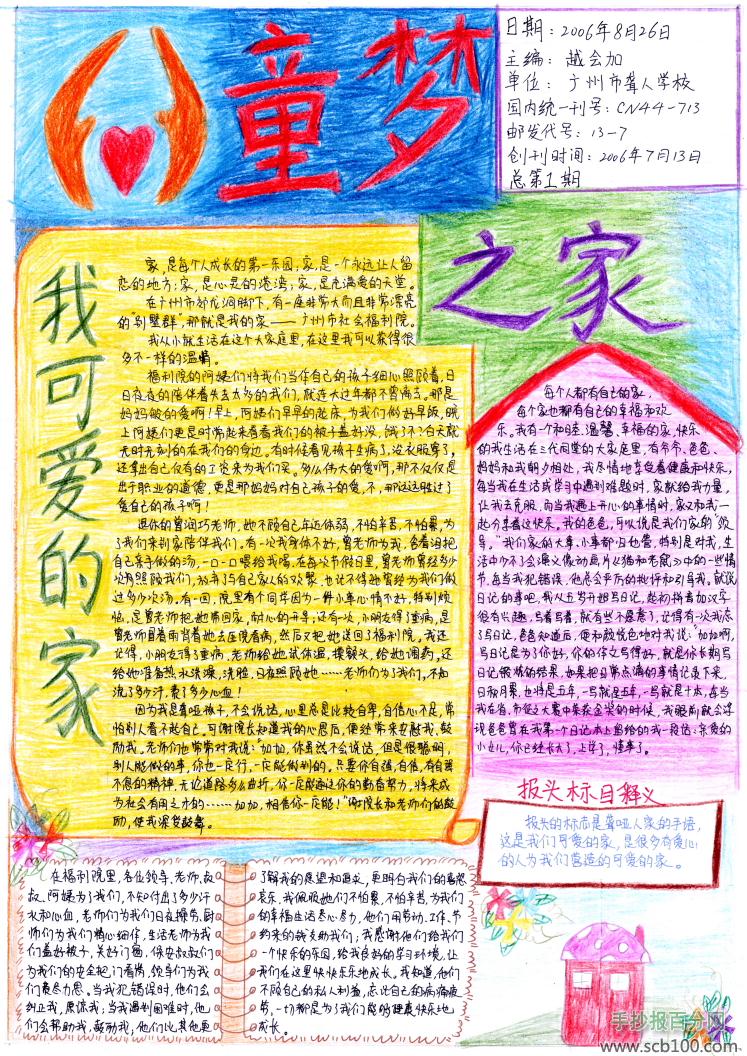 童梦
之家
日期：2006年8月26日
主编：越会加
单位：广州市聋人学校
国内统一刊号：CN44-713
邮发代号：13-7
创刊时间：2006年7月13日
总第1期
我可爱的家
家，是每个人成长的第一乐园；家，是一个永远让人留
恋的地方；家，是心灵的港湾；家，是充满爱的天堂。
在广州市郊龙洞脚下，有一座非常大而且非常漂亮
的“别墅群”，那就是我的家——广州市社会福利院。
我从小就生活在这个大家庭里，在这里我可以获得很
多不一样的温情。
福利院的阿姨们将我们当作自己的孩子细心照顾着，日
日夜夜的陪伴着失去太多的我们，就连大过年都不曾离去。那是
妈妈般的爱啊！早上，阿姨们早早的起床，为我们做好早饭，晚
上阿姨们更是时常起来看看我们的被子盖好没，饿了不？白天就
无时无刻的在我们的身边。有时候看见孩子生病了，没衣服穿了，
还拿出自己仅有的工资来为我们买。多么伟大的爱啊，那不仅仅是
出于职业的道德，更是那妈妈对自己孩子的爱，不，那远远胜过了
爱自己的孩子啊！
退休的曾润巧老师，她不顾自己年近体弱，不怕辛苦，不怕累，为
了我们来到家陪伴我们。有一次我身体不好，曾老师为我，含着泪把
自己亲手做的汤，一口一口喂给我喝，在每次节假日里，曾老师曾经多少
次为照顾我们，放弃了与自己家人的欢聚，也记不得她曾经为我们做
过多少次汤。有一回，院里有个同年因为一件小事心情不好，特别烦
恼，是曾老师把她带回家，耐心的开导；还有一次，小朋友得了重病，是
曾老师冒着雨背着她去医院看病，然后又把她送回了福利院。我还
记得，小朋友得了重病，老师给她试体温，摸额头，给她调药，还
给她准备热水洗澡，洗脸，日夜照顾她……老师们为了我们，不知
流了多少汗，费了多少心血！
因为我是聋哑孩子，不会说话，心里总是比较自卑，自信心不足，常
怕别人看不起自己。可谢院长知道我的心思后，便经常来安慰我，鼓
励我。老师们也常常对我说：“加加，你虽然不会说话，但是很聪明，
别人能做的事，你也一定行，一定能做到的。只要你自强，自信，有自强
不息的精神，无论道路多么曲折，你一定能通过你的勤奋努力，将来成
为社会有用之才的……加加，相信你一定能！”谢院长和老师们的鼓
励，使我深受鼓舞。
每个人都有自己的家，
每个家也都有自己的幸福和欢
乐。我有一个和睦、温馨、幸福的家，快乐
的我生活在三代同堂的大家庭里，有爷爷、爸爸、
妈妈和我朝夕相处，我尽情地享受着健康和快乐，
每当我在生活或学习中遇到难题时，家就给我力量，
让我去克服，而当我遇上开心的事情时，家又和我一
起分享着这快乐。我的爸爸，可以说是我们家的“领
导。”我们家的大事、小事都归他管，特别是对我，生
活中少不了会演义像动画片《猫和老鼠》中的一些情
节，每当我犯错误，他总会严厉的批评和引导我。就说
日记的事吧，我从五岁开始写日记，起初拼音加汉字
很有兴趣，写着写着，就有些不愿意了，记得有一次我忘
了写日记，爸爸知道后，便和颜悦色地对我说：“加加啊，
写日记是为了你好，你的作文写得好，就是你长期写
日记锻炼的结果，如果把日常点滴的事情记录下来，
日积月累，也将是五年，一写就是五年，一写就是十本，每当
我在省、市征文大赛中荣获金奖的时候，我眼前就会浮
现爸爸曾在我第一个日记本上留给的我一段话：亲爱的
小女儿，你已经长大了，上学了，懂事了。
报头标目释义
报头的标志是聋哑人家的手语，
这是我们可爱的家，是很多有爱心
的人为我们营造的可爱的家。
在福利院里，各位领导、老师、叔
叔、阿姨为了我们，不知付出了多少汗
水和心血，老师们为我们日夜操劳，厨
师们为我们精心细作，生活老师为我
们盖好被子，关好门窗，保安叔叔们
为我们的安全把门看岗，领导们为我
们费尽力思。当我犯错误时，他们会
纠正我，原谅我；当我遇到困难时，他
们会帮助我，鼓励我，他们比我他更
了解我的愿望和追求，更明白我们的喜怒
哀乐，我佩服她们不怕累，不怕辛苦，为我们
的幸福生活尽心尽力，他们用劳动、工作、节
约来的钱支助我们；我感谢他们给我们
一个快乐的乐园，给我良好的学习环境，让
我们在这里快快乐乐地成长。我知道，他们
不顾自己的私人利益，忘记自己的病痛疲
劳，一切都是为了我们能够健康快乐地
成长。
手抄报百分网
www.scb100.com